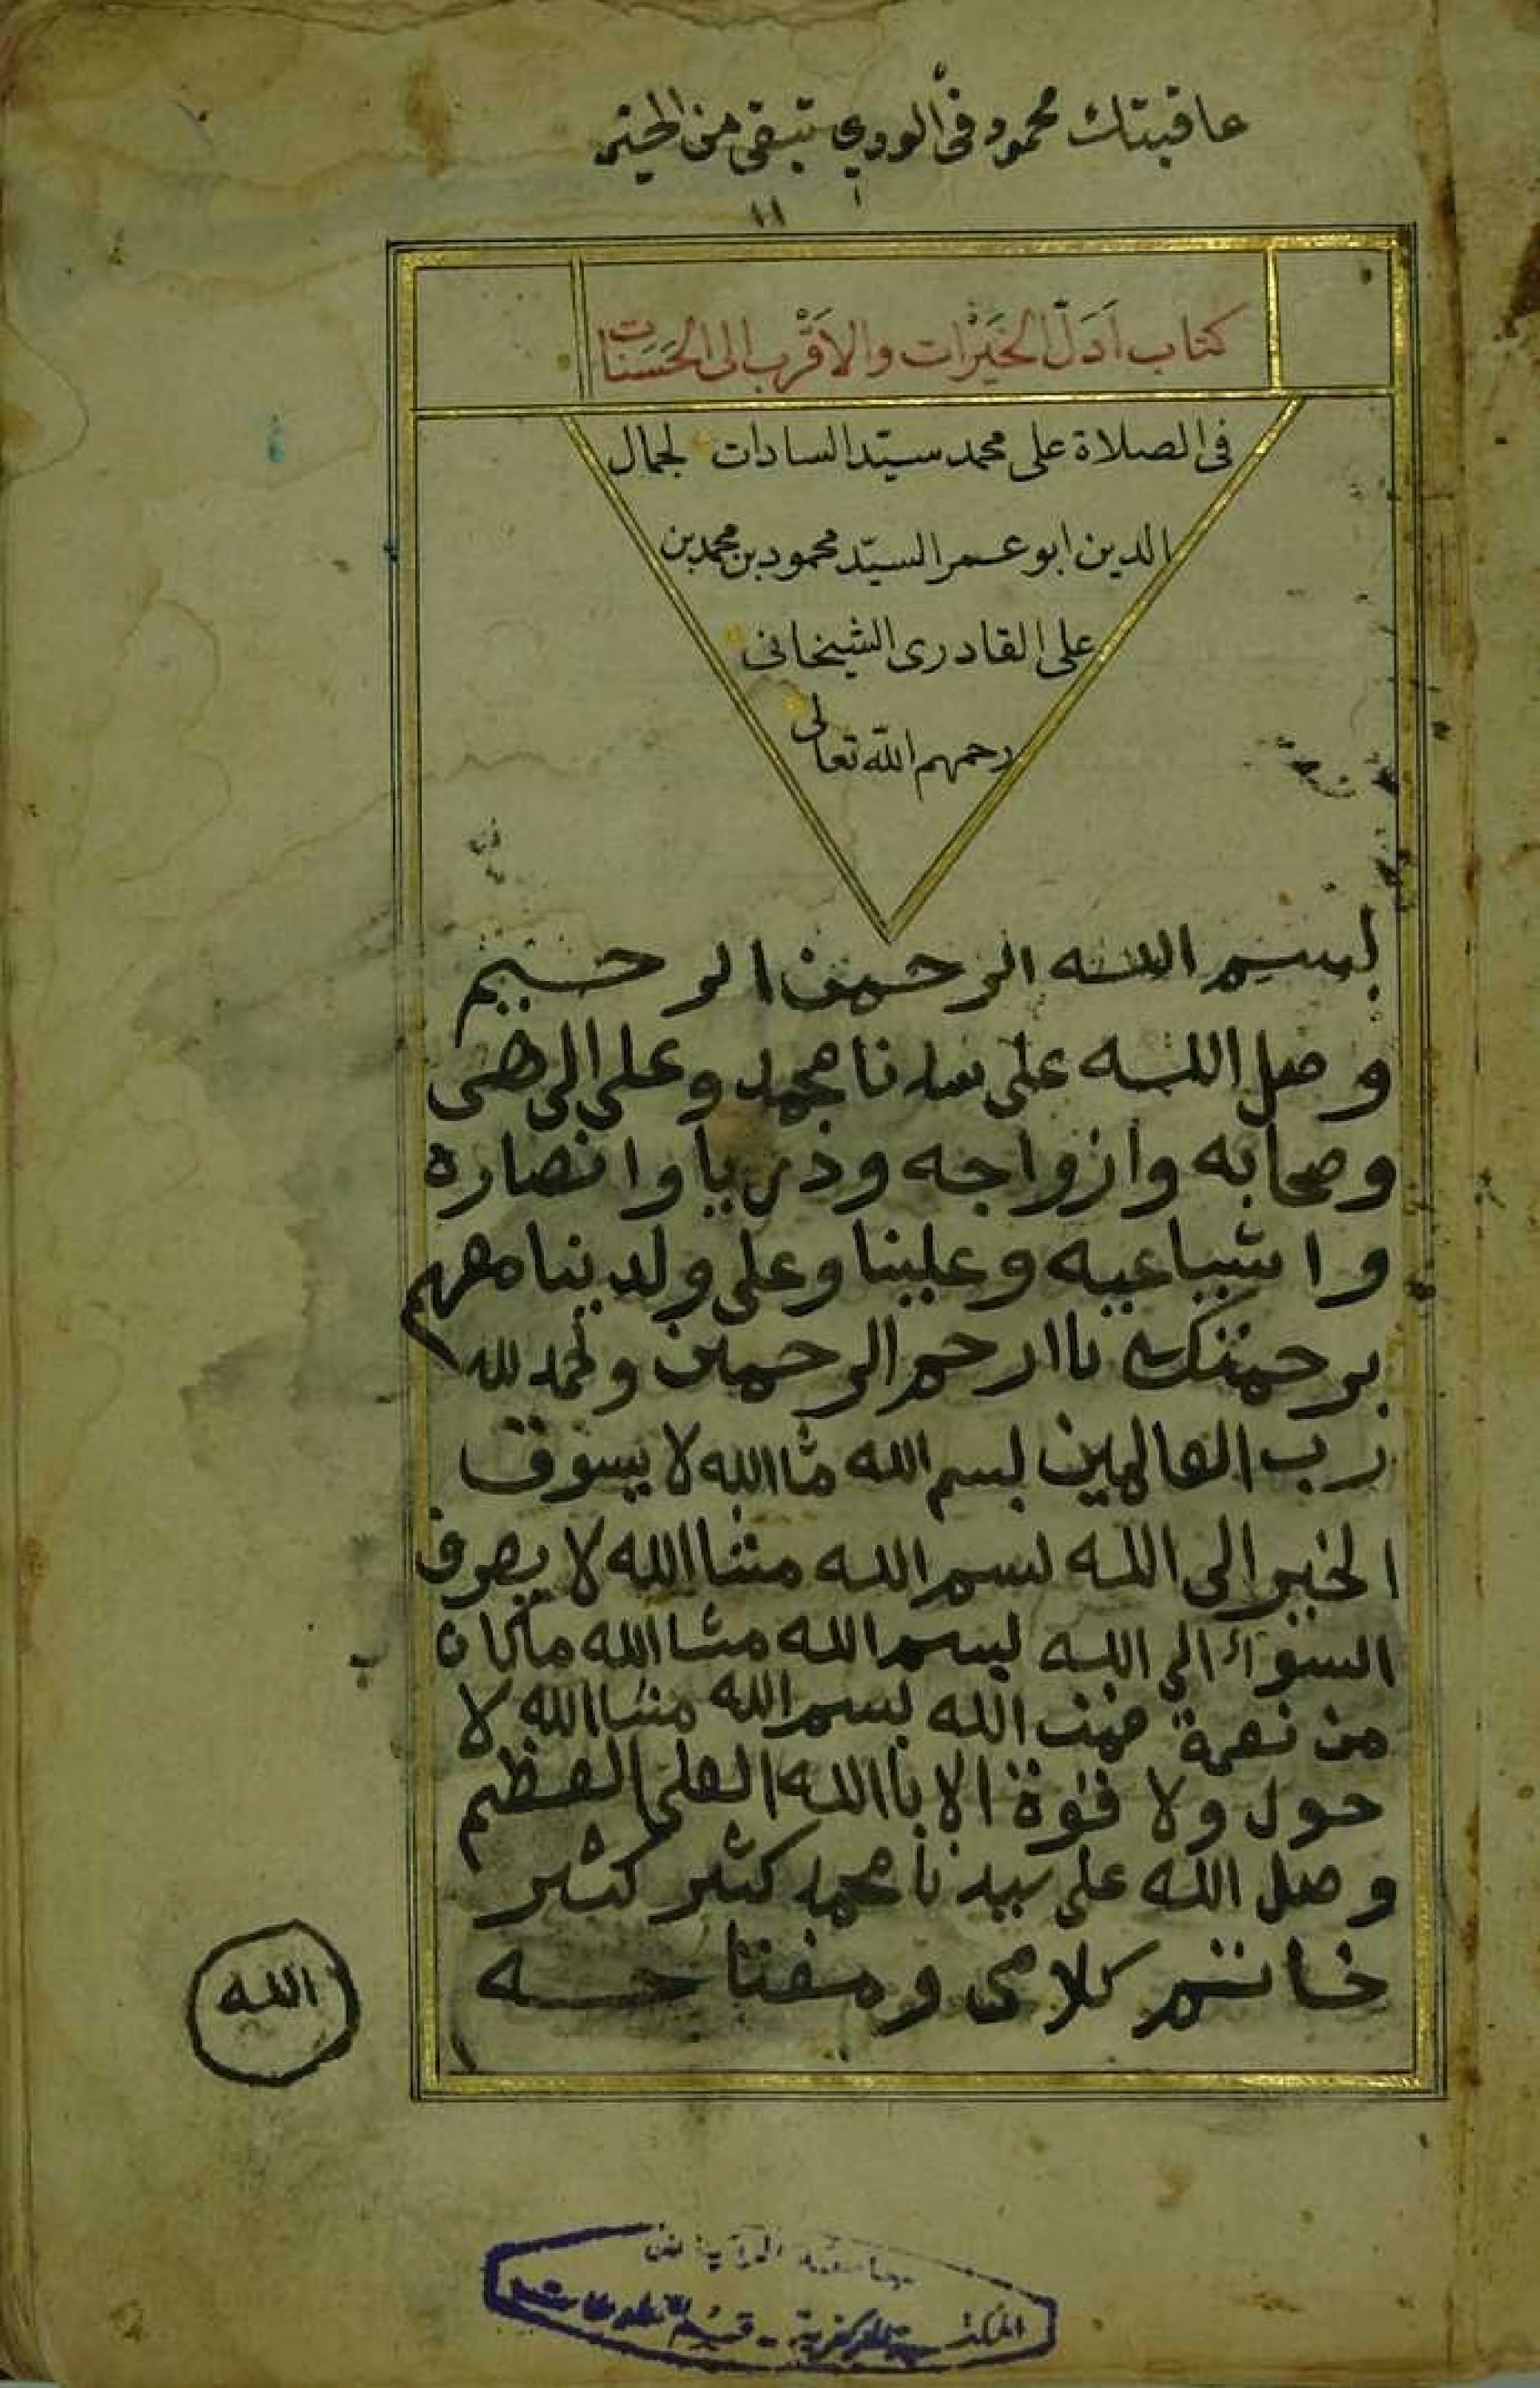 عاقبتك محمود في الوري تبقي من
كتاب اَدَلّ الخَيْرات والاَقْرب الى الحَسَنات
فى الصلاة على محمد سيّد السادات لجمال
الدين ابو عمر السيّد محمود بن محمد بن
على القادرى الشيخانى
رحمهم الله تعالى
بسم الله الرحمن الرحيم
وصل الله على سدنا محمد وعلى الى
وصحابه وازواجه وذريا وانصاره
واشياعيه وعلينا وعلى ولدينا معهم
برحمتك ياارحم الرحمين ولحمد لله
رب العالمين بسم الله مشاالله لا يسوق
الخير الى الله بسم الله مشاالله لا يصرف
السوء الى الله بسم الله مشاالله ماكان
من نعمة فمن الله بسم الله مشاالله لا
حول ولا قوة الا باالله العلى العظيم
وصل الله على سيدنا محمد كثير كثير
خاتم كلامى ومفتاحه
الله
المكتبة المركزية - قسم المخطوطات